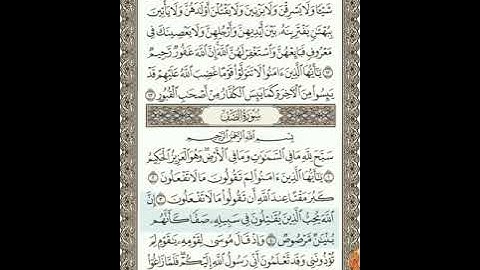 شَيْـًٔا وَلَا يَسْرِقْنَ وَلَا يَزْنِينَ وَلَا يَقْتُلْنَ أَوْلَٰدَهُنَّ وَلَا يَأْتِينَ
بِبُهْتَٰنٍ يَفْتَرِينَهُۥ بَيْنَ أَيْدِيهِنَّ وَأَرْجُلِهِنَّ وَلَا يَعْصِينَكَ فِى
مَعْرُوفٍ فَبَايِعْهُنَّ وَٱسْتَغْفِرْ لَهُنَّ ٱللَّهَ إِنَّ ٱللَّهَ غَفُورٌ رَّحِيمٌ
١٢ يَٰٓأَيُّهَا ٱلَّذِينَ ءَامَنُوا۟ لَا تَتَوَلَّوْا۟ قَوْمًا غَضِبَ ٱللَّهُ عَلَيْهِمْ قَدْ
يَئِسُوا۟ مِنَ ٱلْءَاخِرَةِ كَمَا يَئِسَ ٱلْكُفَّارُ مِنْ أَصْحَٰبِ ٱلْقُبُورِ ١٣
سُورَةُ الصَّفِّ
بِسْمِ ٱللَّهِ ٱلرَّحْمَٰنِ ٱلرَّحِيمِ
سَبَّحَ لِلَّهِ مَا فِى ٱلسَّمَٰوَٰتِ وَمَا فِى ٱلْأَرْضِ وَهُوَ ٱلْعَزِيزُ ٱلْحَكِيمُ
١ يَٰٓأَيُّهَا ٱلَّذِينَ ءَامَنُوا۟ لِمَ تَقُولُونَ مَا لَا تَفْعَلُونَ ٢
كَبُرَ مَقْتًا عِندَ ٱللَّهِ أَن تَقُولُوا۟ مَا لَا تَفْعَلُونَ ٣ إِنَّ
ٱللَّهَ يُحِبُّ ٱلَّذِينَ يُقَٰتِلُونَ فِى سَبِيلِهِۦ صَفًّا كَأَنَّهُم
بُنْيَٰنٌ مَّرْصُوصٌ ٤ وَإِذْ قَالَ مُوسَىٰ لِقَوْمِهِۦ يَٰقَوْمِ لِمَ
تُؤْذُونَنِى وَقَد تَّعْلَمُونَ أَنِّى رَسُولُ ٱللَّهِ إِلَيْكُمْ فَلَمَّا زَاغُوٓا۟